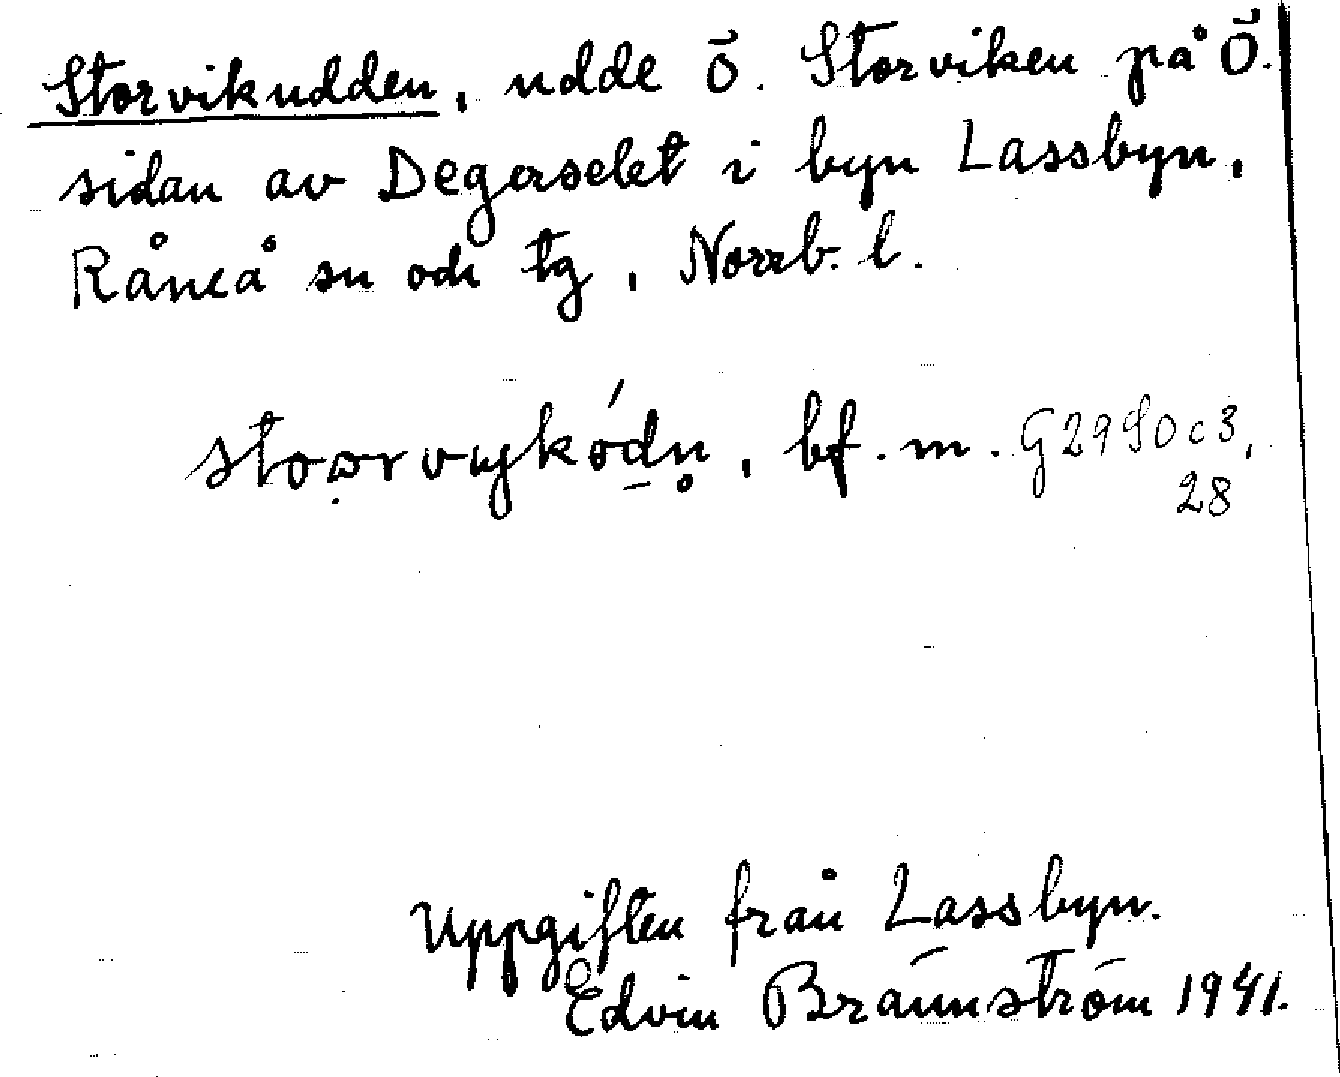 Storvikudden, udde ö. Storviken på ö.
sidan av Degerselet i byn Lassbyn,
Råneå sn och tg, Norrb. l.
bf. m. G2990c3,
28
Uppgiften från Lassbyn.
Edvin Brännström 1941.